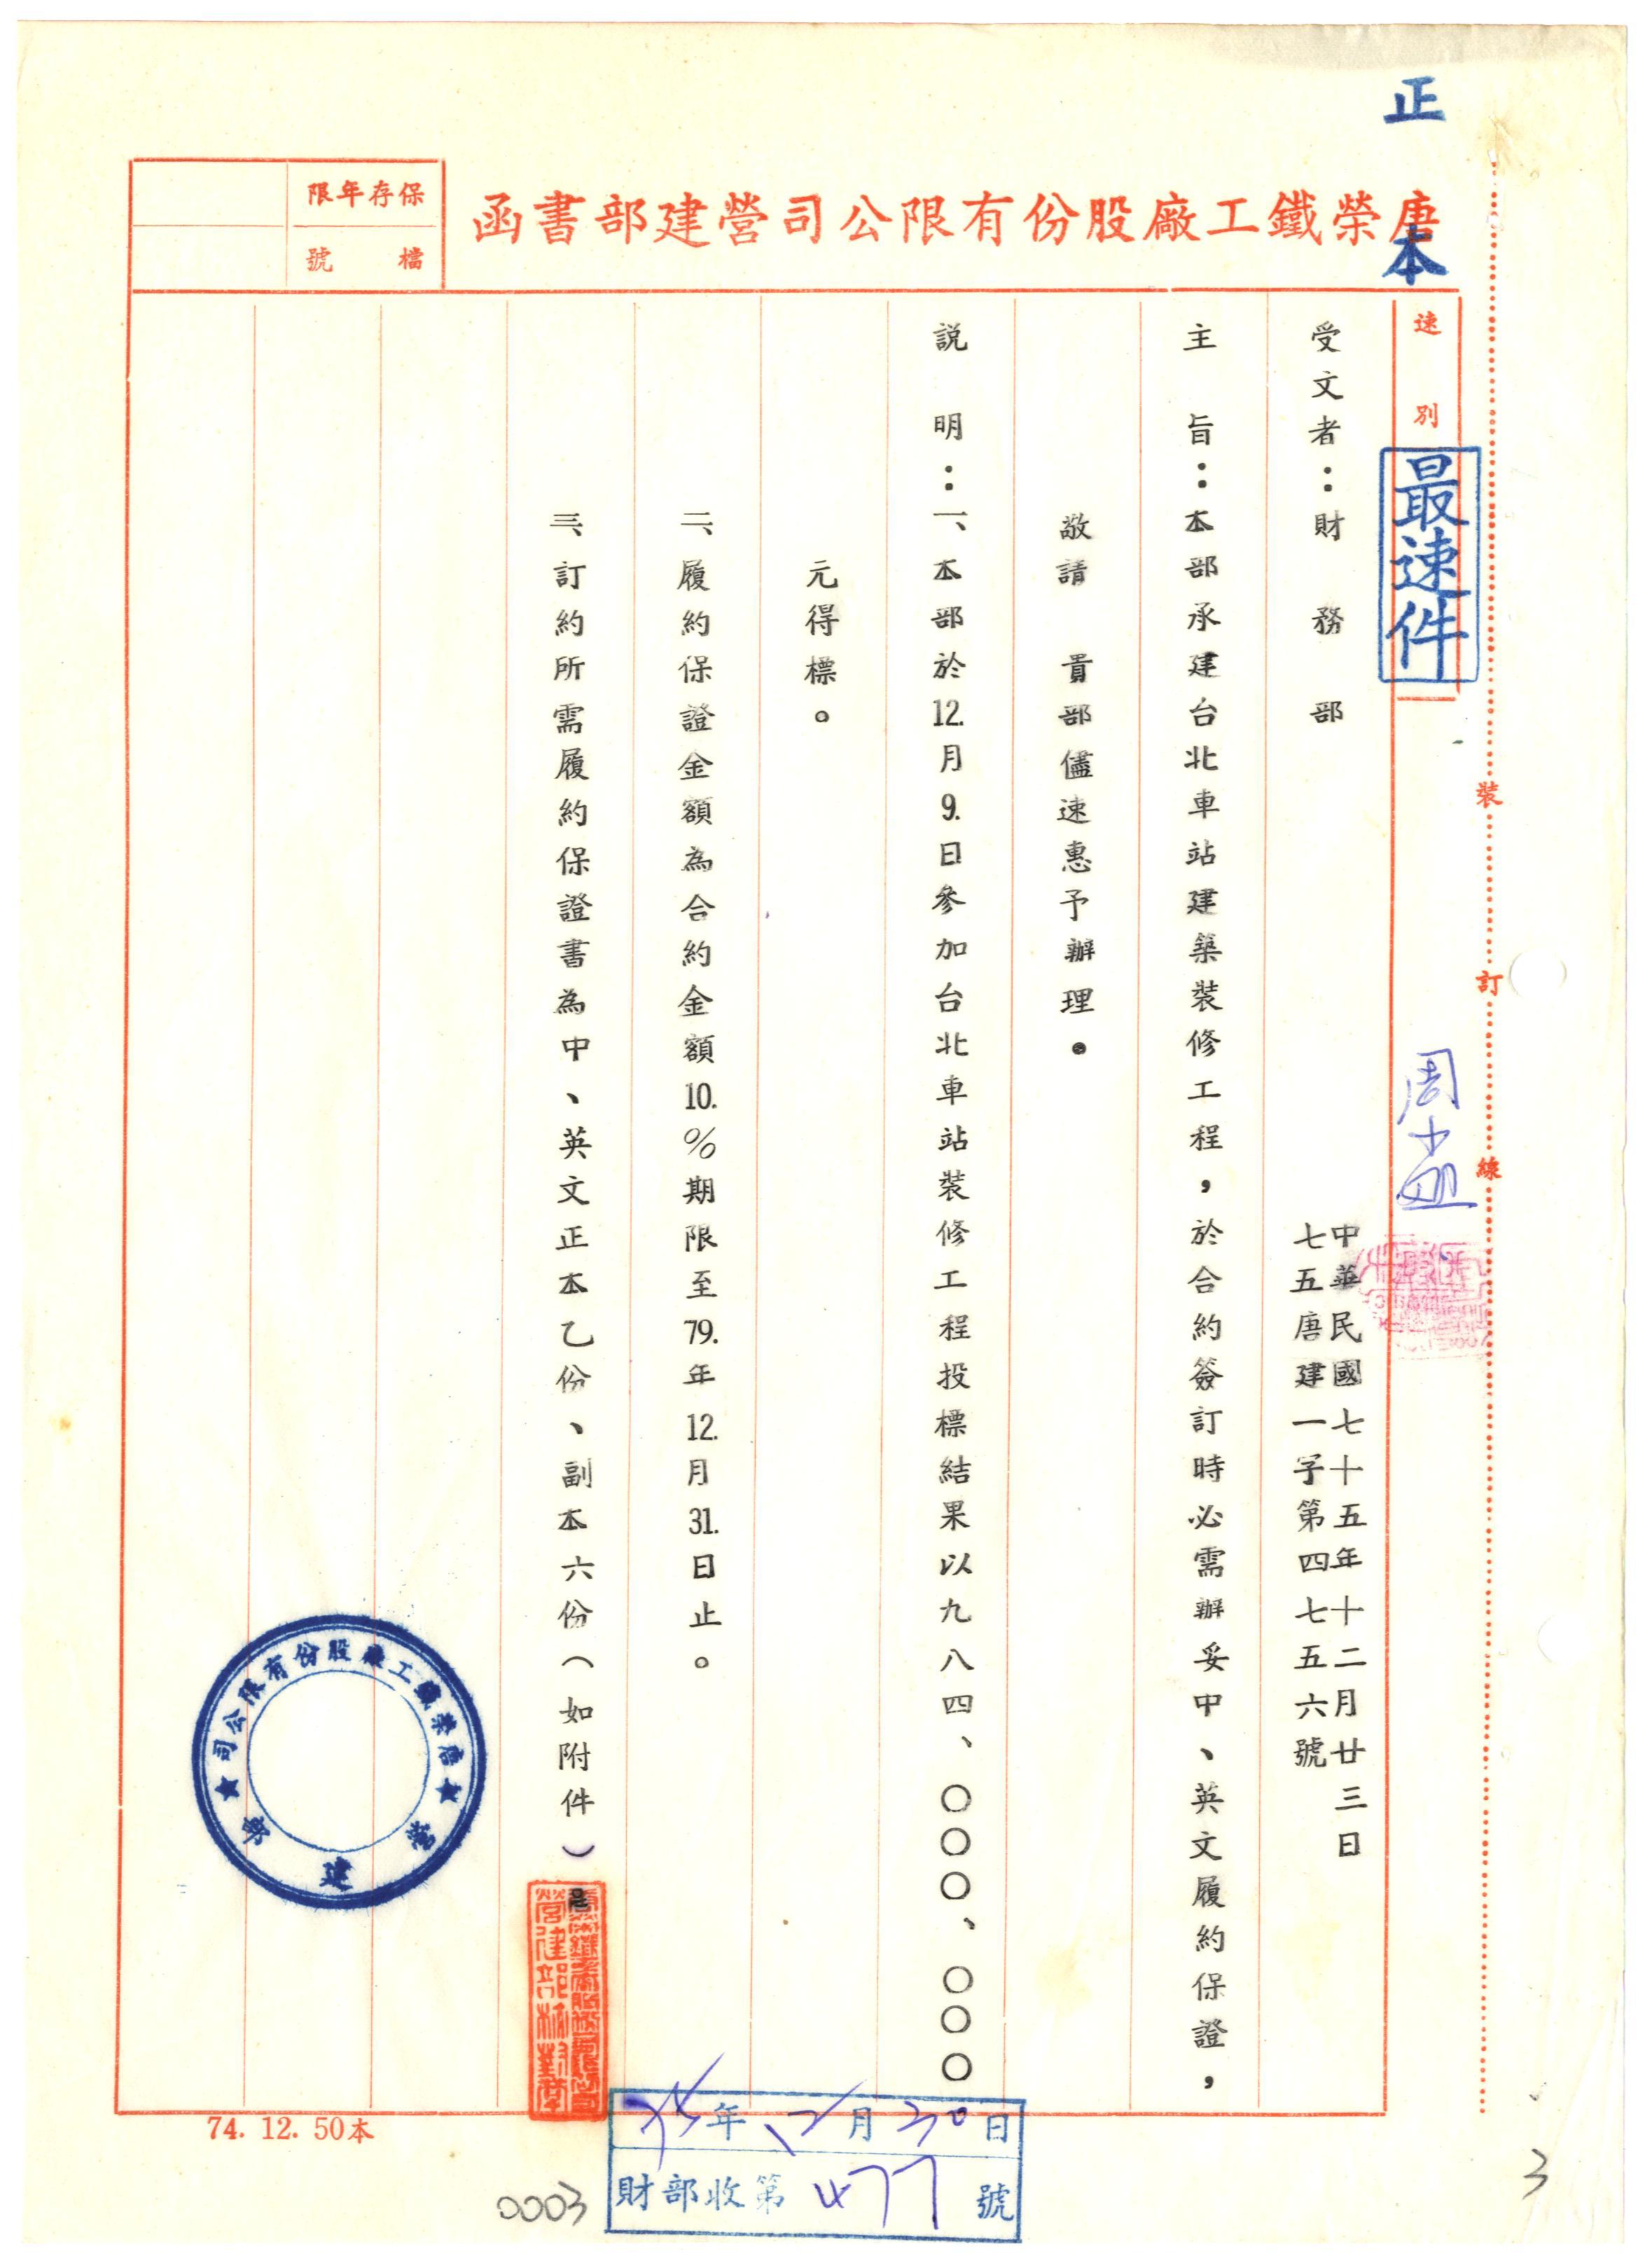 正本
唐榮鐵工廠股份有限公司營建部書函
保存年限
檔號
速別
最速件
裝訂線
中華民國七十五年十二月廿三日
七五唐建一字第四七五六號
受文者：財務部
主旨：本部承建台北車站建築裝修工程，於合約簽訂時必需辦妥中、英文履約保證，
敬請　貴部儘速惠予辦理。
說明：一、本部於12.月9.日參加台北車站裝修工程投標結果以九八四、〇〇〇、〇〇〇
元得標。
二、履約保證金額為合約金額10.%期限至79.年12.月31.日止。
三、訂約所需履約保證書為中、英文正本乙份、副本六份（如附件）
唐榮鐵工廠股份有限公司
營建部
75年12月30日
財部收第477號
74. 12. 50本
0003
3